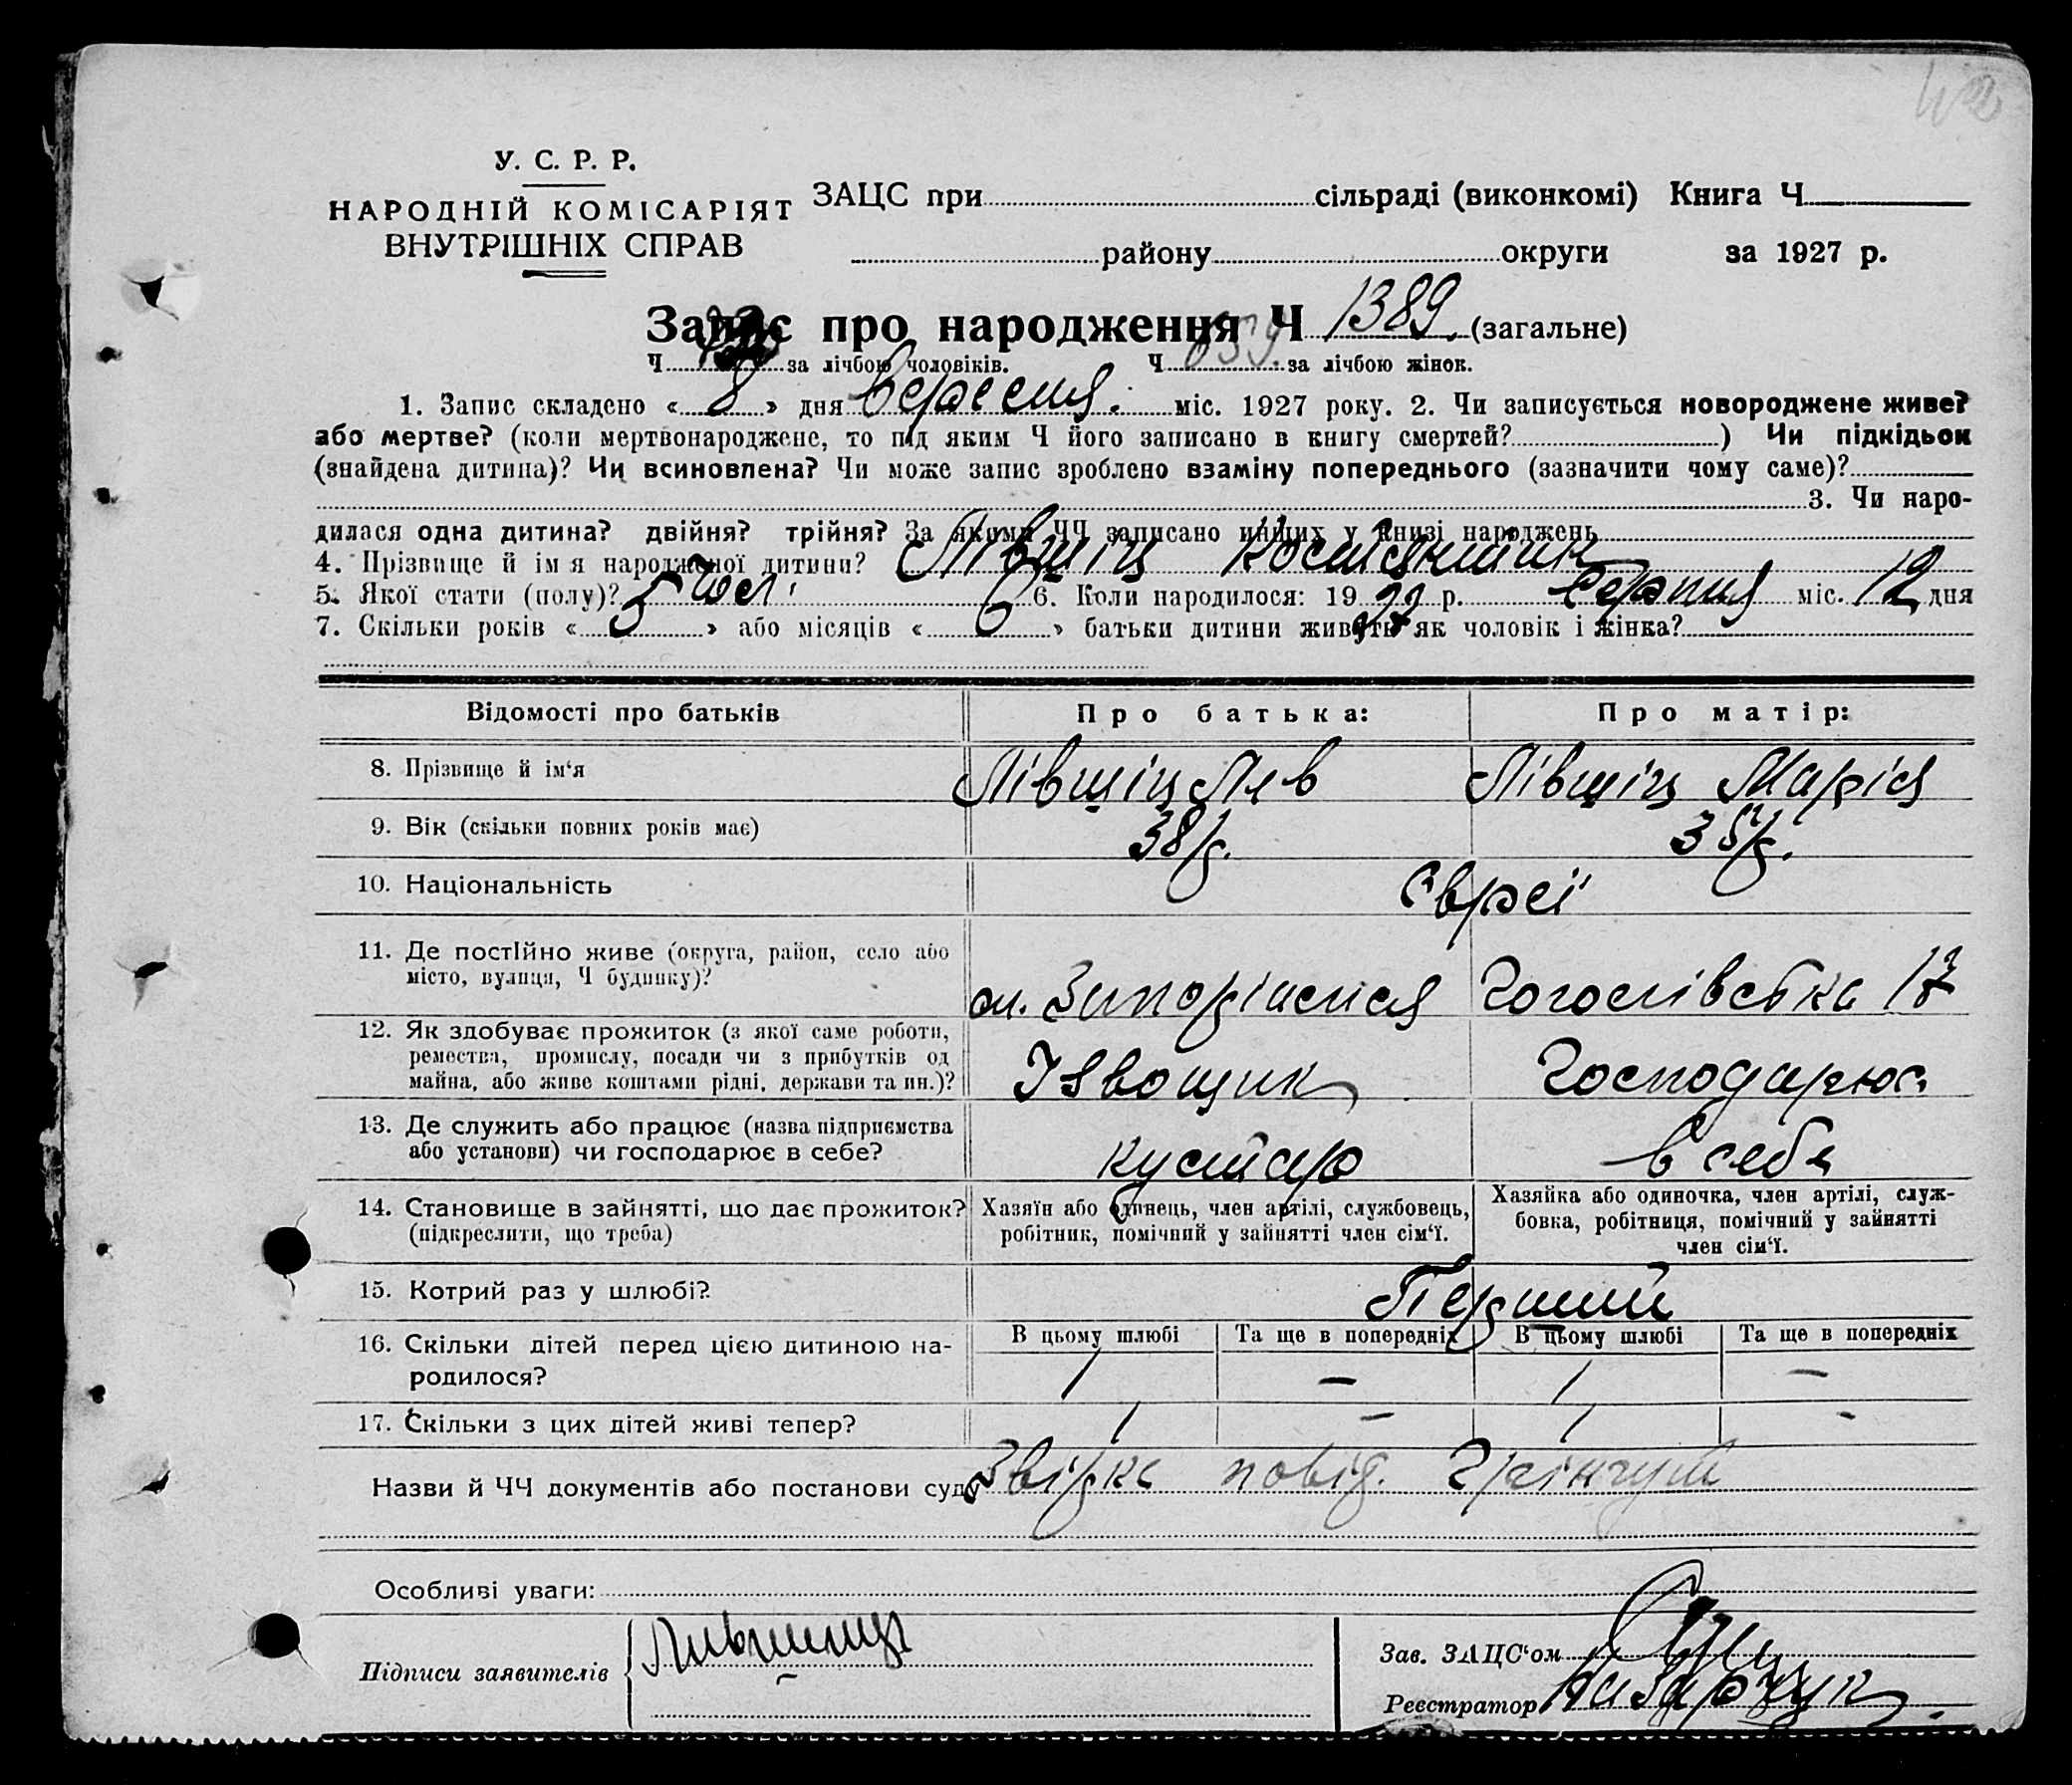 У. С. Р. Р.
НАРОДНІЙ КОМІСАРІЯТ
ВНУТРІШНІХ СПРАВ
ЗАЦС при сільраді (виконкомі) Книга Ч
району округи за 1927 р.
Запис про народження Ч 1389. (загальне)
Ч за лічбою чоловіків. Ч 659. за лічбою жінок.
1. Запис складено « 8 » дня Вересня. міс. 1927 року. 2. Чи записується новороджене живе?
або мертве? (коли мертвонароджене, то під яким Ч його записано в книгу смертей? ) Чи підкідьок
(знайдена дитина)? Чи всиновлена? Чи може запис зроблено взаміну попереднього (зазначити чому саме)?
3. Чи наро-
дилася одна дитина? двійня? трійня? За якими ЧЧ записано инших у книзі народжень
4. Прізвище й ім я народженої дитини? Лівшіц
5. Якої стати (полу)? Чол. 6. Коли народилося: 19 27 р. Серпня міс. 12 дня
7. Скільки років « 5 » або місяців « 6 » батьки дитини живуть як чоловік і жінка?
Відомості про батьків Про батька: Про матір:
8. Прізвище й ім‘я Лівшіц Лев Лівшіц Марія
9. Вік (скільки повних років має) 38 р. 35 р.
10. Національність Євреї
11. Де постійно живе (округа, район, село або
місто, вулиця, Ч будинку)?
м. Запоріжжя 17
12. Як здобуває прожиток (з якої саме роботи,
ремества, промислу, посади чи з прибутків од
майна, або живе коштами рідні, держави та ин.)?
Ізвощик Господарює
13. Де служить або працює (назва підприємства
або установи) чи господарює в себе?
кустар в себе
14. Становище в зайнятті, що дає прожиток?
(підкреслити, що треба)
Хазяїн або одинець, член артілі, службовець,
робітник, помічний у зайнятті член сім‘ї.
Хазяйка або одиночка, член артілі, служ-
бовка, робітниця, помічний у зайнятті
член сім‘ї.
15. Котрий раз у шлюбі? Перший
В цьому шлюбі Та ще в попередніх В цьому шлюбі Та ще в попередніх
16. Скільки дітей перед цією дитиною на-
родилося?
1 – 1 –
17. Скільки з цих дітей живі тепер? 1 – 1 -
Назви й ЧЧ документів або постанови суду Звірке повід.
Особливі уваги:
Підписи заявителів Лившиц
Зав. ЗАЦС‘ом
Реєстратор Назарчук